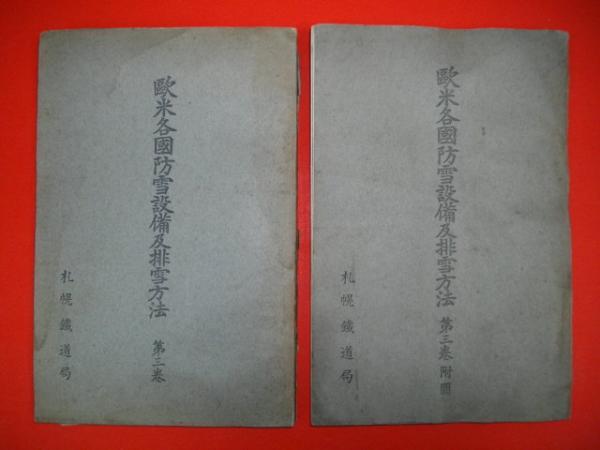 歐米各國防雪設備及排雪方法 第三卷
札幌鐵道局
歐米各國防雪設備及排雪方法 第三卷附圖
札幌鐵道局